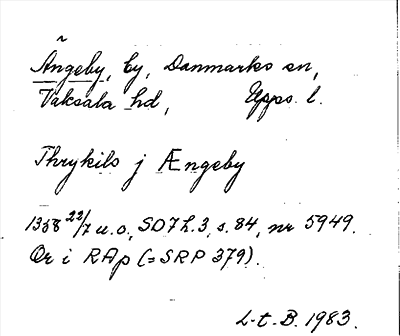 Ängeby, by, Danmarks sn,
Vaksala hd, Upps. l.
Thrykils j Ængeby
1358 22/7 u.o., SD 7 h.3, s. 84, nr 5949.
Or i RAp (= SRP 379).
L-t. B. 1983.